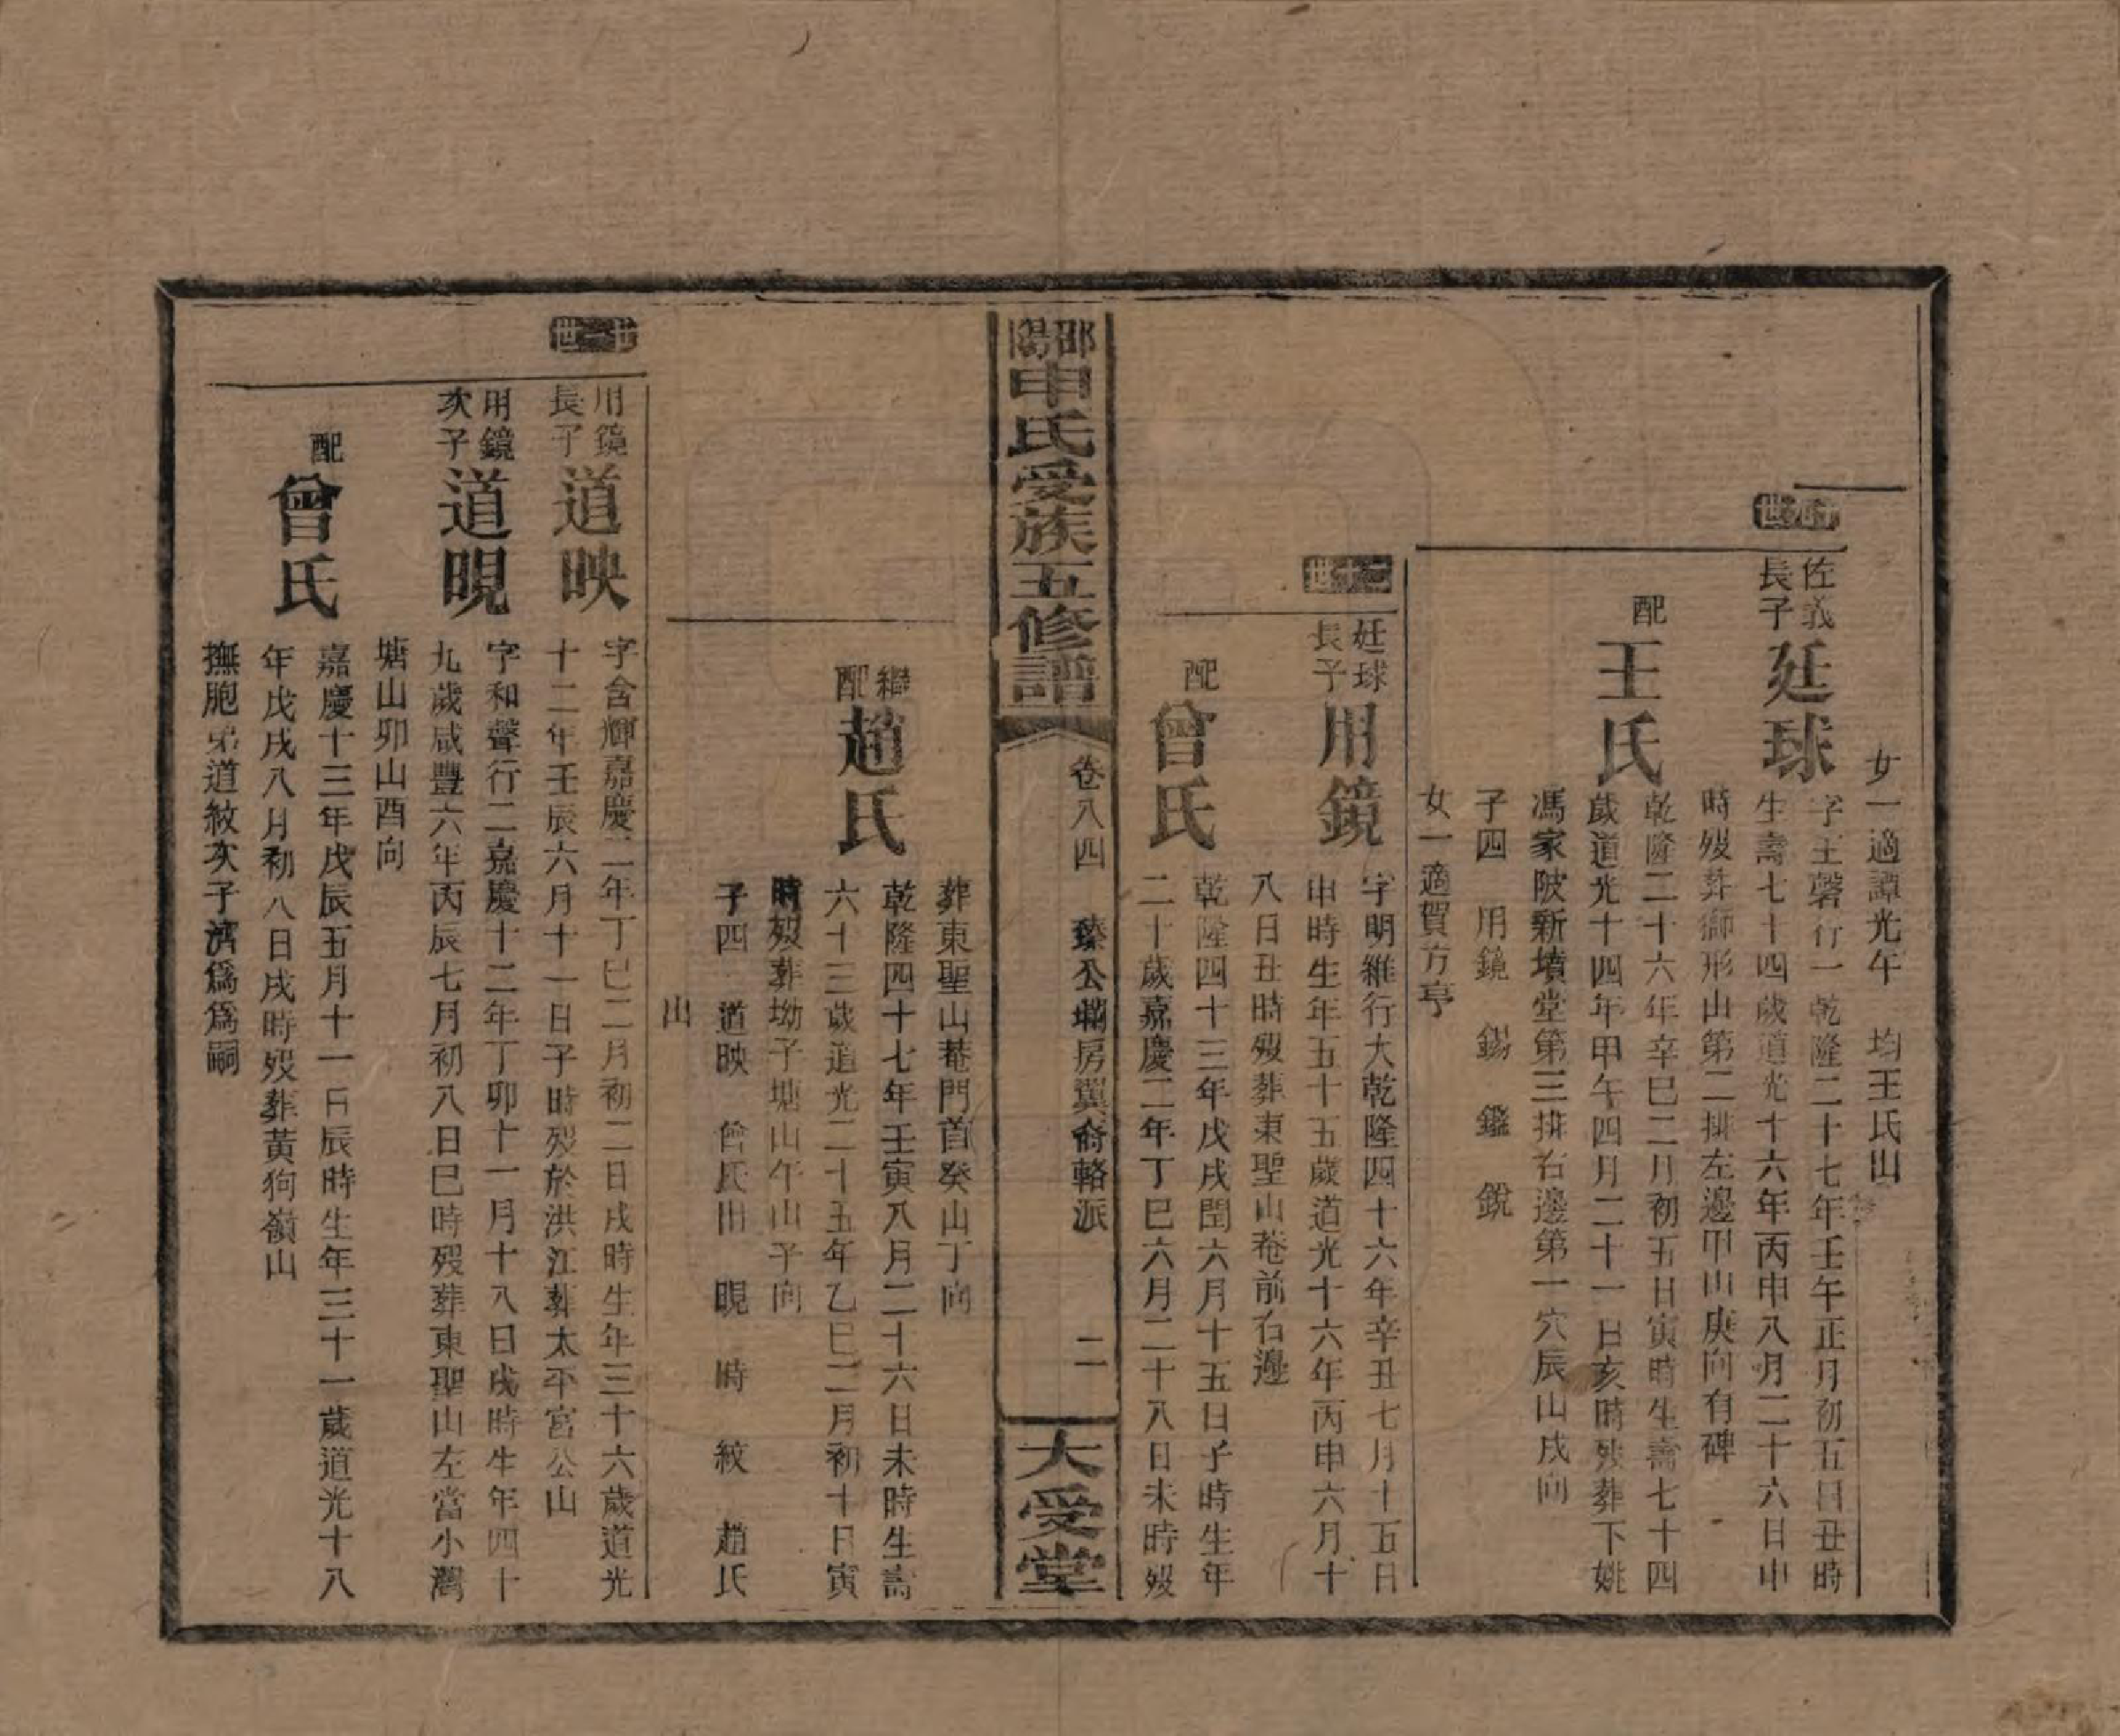 女一適譚光午　均王氏出
十九世
佐義長子
廷球
字王磬行一乾隆二十七年壬午正月初五日丑時
生壽七十四歲道光十六年丙申八月二十六日申
時歿葬獅形山第二排左邊甲山庚向有碑
配
王氏
乾隆二十六年辛巳二月初五日寅時生壽七十四
歲道光十四年甲午四月二十一日亥時歿葬下姚
馮家陂新墳堂第三排右邊第一穴辰山戌向
子四　用鏡　錫　鑑　銳
女一適賀方亭
二十世
廷球長子
用鏡
字明維行大乾隆四十六年辛丑七月十五日
申時生年五十五歲道光十六年丙申六月十
八日丑時歿葬東聖山菴前右邊
配
曾氏
乾隆四十三年戊戌閏六月十五日子時生年
二十歲嘉慶二年丁巳六月二十八日未時歿
邵陽申氏受族五修譜
卷八四　臻公壪房翼裔輅派　二
大受堂
葬東聖山菴門首癸山丁向
繼配
趙氏
乾隆四十七年壬寅八月二十六日未時生壽
六十三歲道光二十五年乙巳二月初十日寅
時歿葬坳子塘山午山子向
子四　道映　曾氏出　晛　時　紋　趙氏
出
廿一世
用鏡長子
道映
字含輝嘉慶二年丁巳二月初二日戌時生年三十六歲道光
十二年壬辰六月十一日子時歿於洪江葬太平宮公山
用鏡次子
道晛
字和聲行二嘉慶十二年丁卯十一月十八日戌時生年四十
九歲咸豐六年丙辰七月初八日巳時歿葬東聖山左當小灣
塘山卯山酉向
配
曾氏
嘉慶十三年戊辰五月十一日辰時生年三十一歲道光十八
年戊戌八月初八日戌時歿葬黃狗嶺山
撫胞弟道紋次子濟爲爲嗣